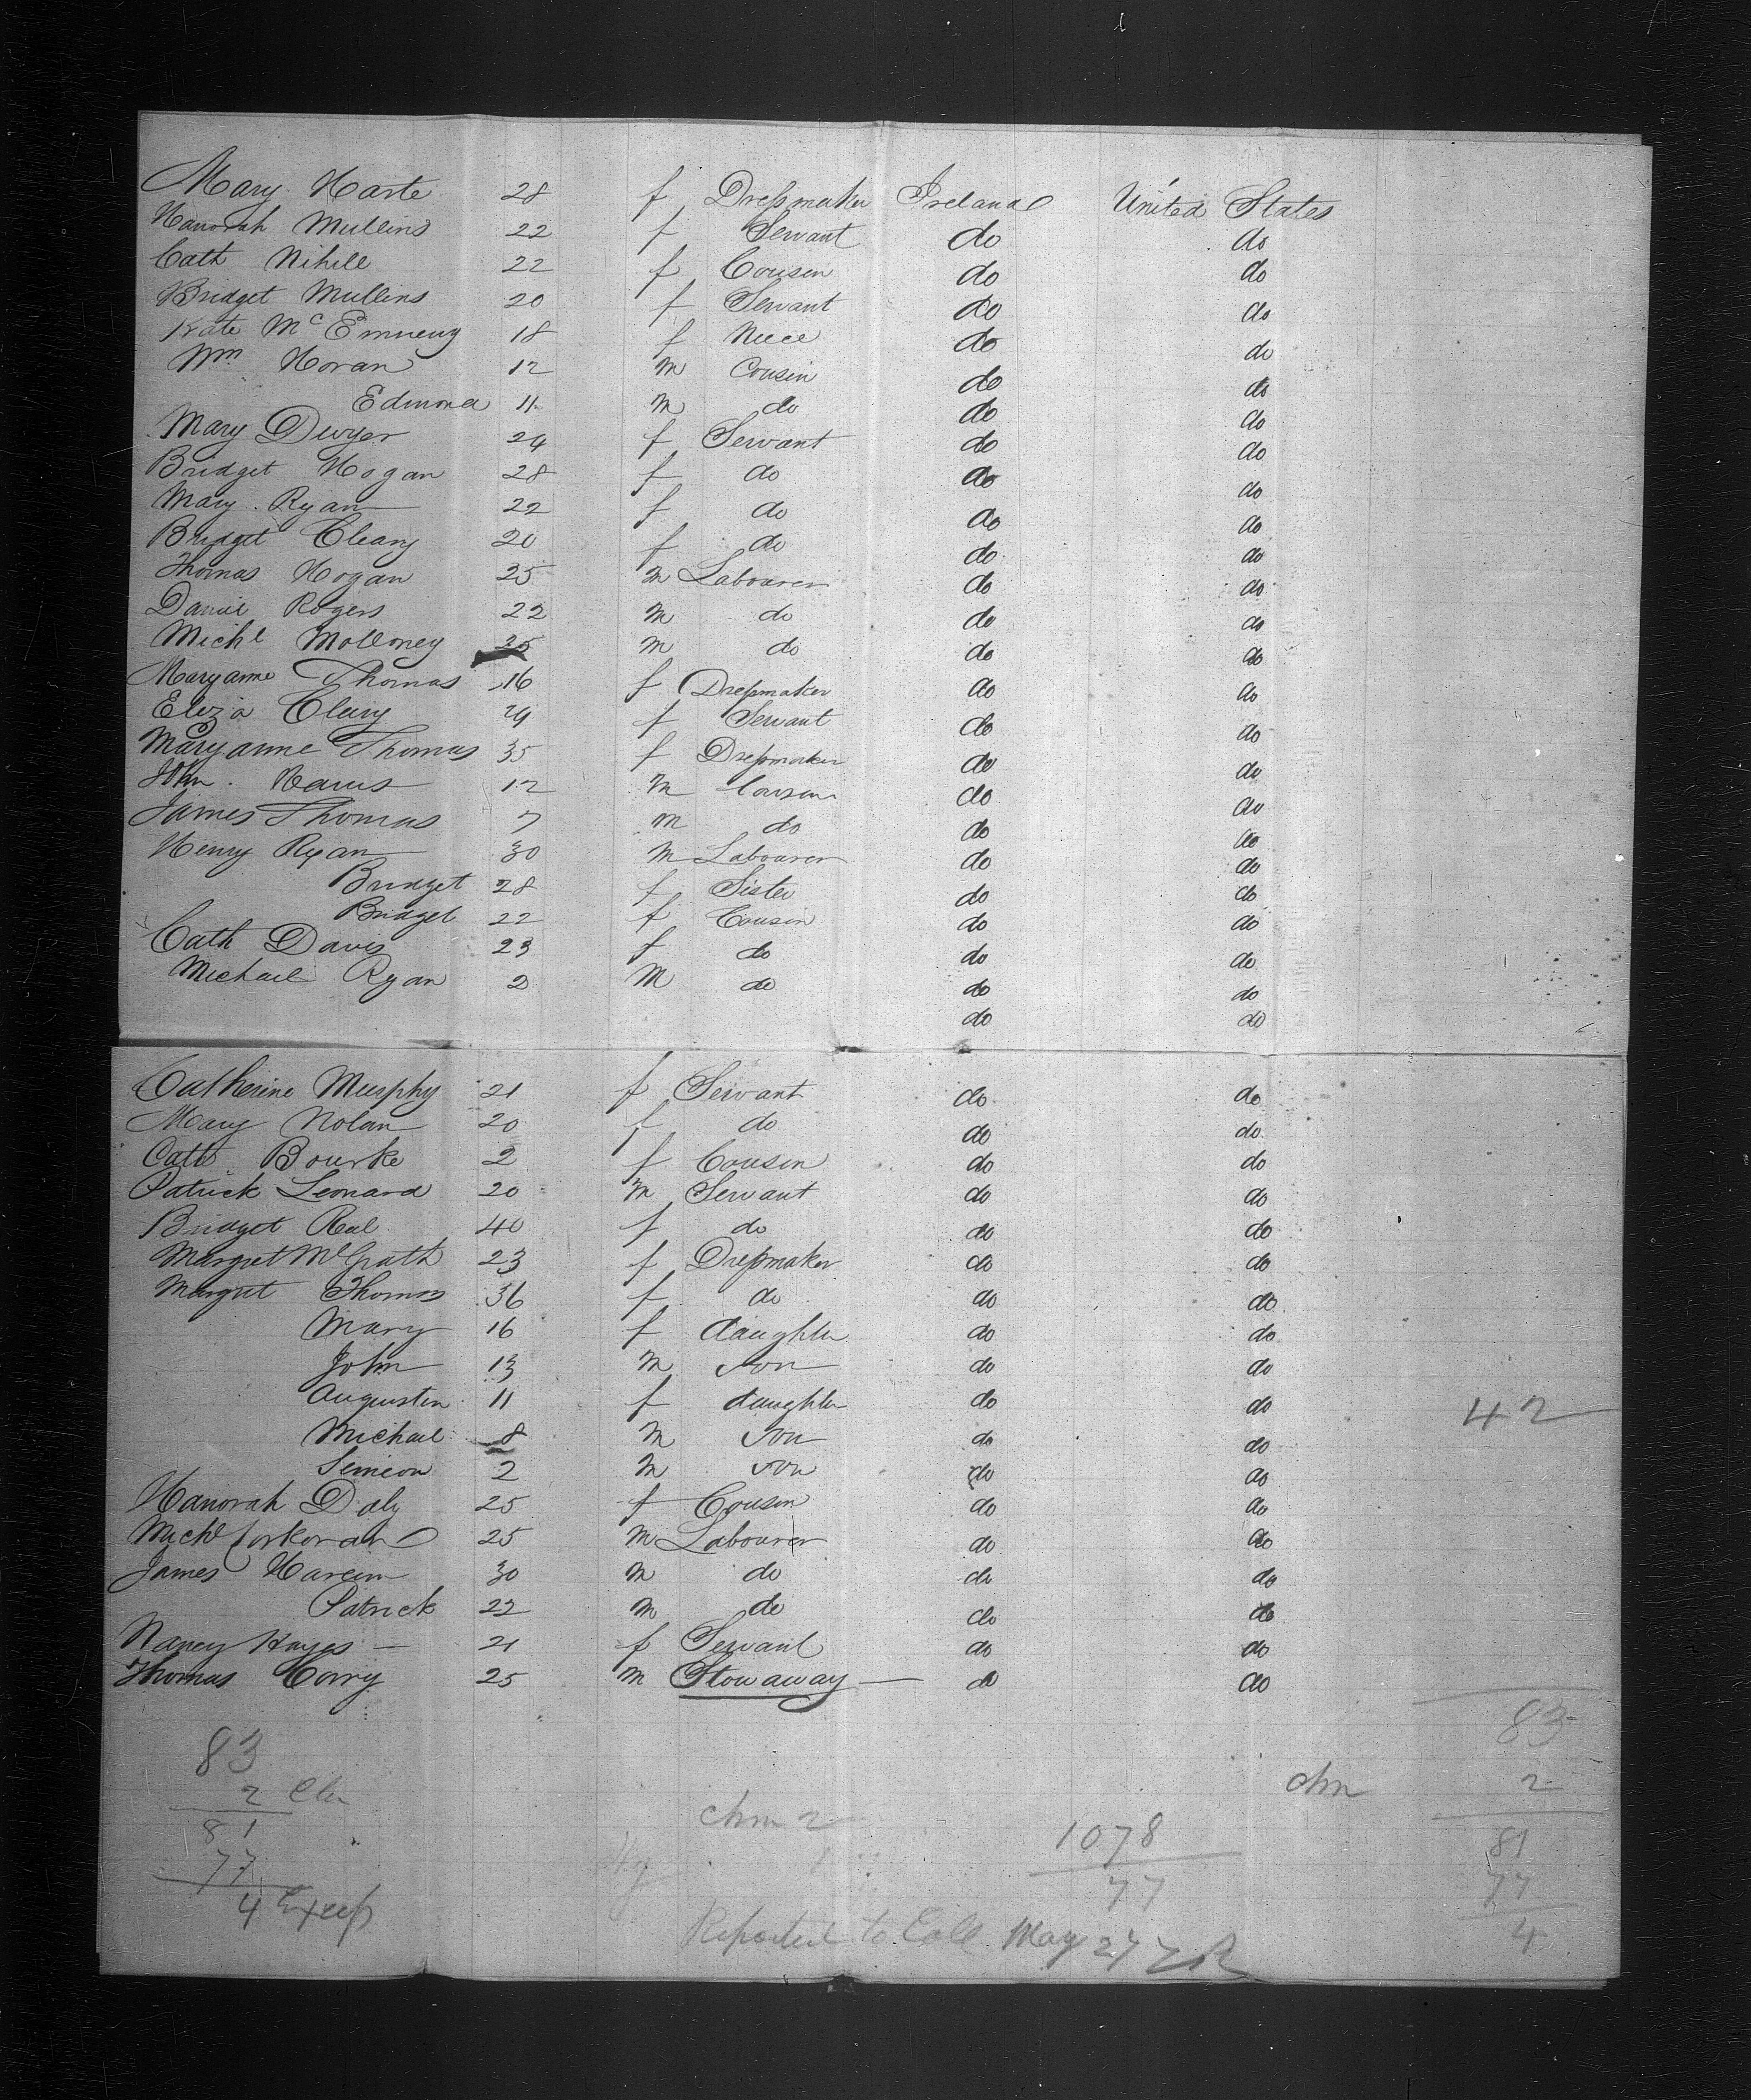 Mary Harte 28 f Dressmaker Ireland United States
Hanorah Mullins 22 f Servant do do
Cath Nihill 22 f Cousin do do
Bridget Mullins 20 f Servant do do
Kate McEnnery 18 f Niece do do
Wm Horan 12 m Cousin do do
Edmond 11 m do do do
Mary Dwyer 24 f Servant do do
Bridget Hogan 28 f do do do
Mary Ryan 22 f do do do
Bridget Cleary 20 f do do do
Thomas Hogan 25 m Labourer do do
Daniel Rogers 22 m do do do
Michl Molloney 25 m do do do
Maryanne Thomas 16 f Dressmaker do do
Eliza Cleary f Servant do do
Maryanne Thomas 35 f Dressmaker do do
John 12 m Cousin do do
James Thomas 7 m do do do
Henry Ryan 30 m Labourer do do
Bridget 28 f Sister do do
Bridget 22 f Cousin do do
Cath Davis 23 f do do do
Michael Ryan 2 m do do do
do do
Catherine Murphy 21 f Servant do do
Mary Nolan 20 f do do do
Cath Bourke 2 f Cousin do do
Patrick Leonard 20 m Servant do do
Bridget Real 40 f do do do
Margret McGrath 23 f Dressmaker do do
Margret Thomas 36 f do do do
Mary 16 f daughter do do
John 13 m son do do
Augusten 11 f daughter do do 42
Michael 8 m son do do
Simeon 2 m son do do
Hanorah Daly 25 f Cousin do do
Michl Corkoran 25 m Labourer do do
James 30 m do do do
Patrick 22 m do do do
Nancy Hayes — 21 f Servant do do
Thomas Corry 25 m Stowaway — do do
83 83
2 Chn chn 2
81 chm 2 1078 81
77 1 77 77
4 Excess 4
Reported to Coll. May 27